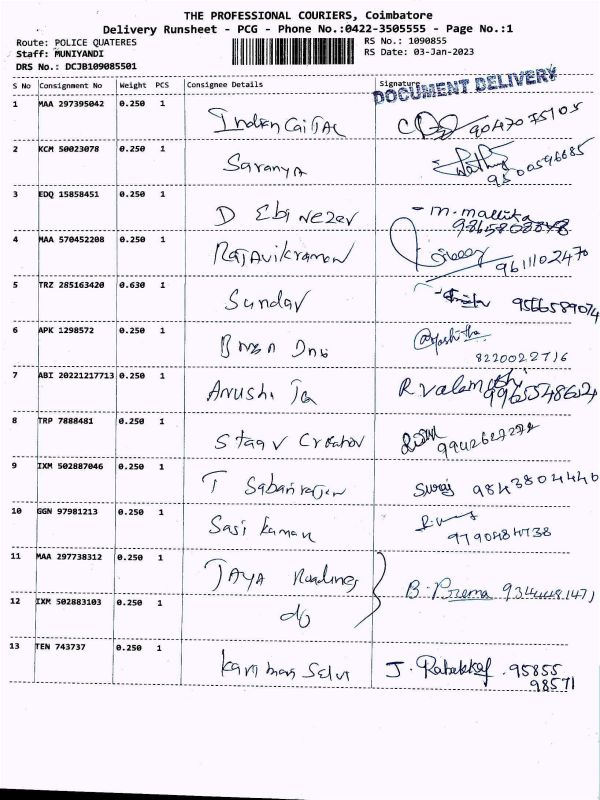 THE PROFESSIONAL COURIERS, Coimbatore
Delivery Runsheet - PCG - Phone No.:0422-3505555 - Page No.:1
Route: POLICE QUATERES
RS No.: 1090855
Staff: MUNIYANDI
RS Date: 03-Jan-2023
DRS No.: DCJB109085501
S No Consignment No Weight PCS Consignee Details Signature
DOCUMENT DELIVERY
1 MAA 297395042 0.250 1
2 KCM 50023078 0.250 1 Saranya 9500596685
3 EDQ 15858451 0.250 1 D Ebinezer - m. mallika
4 MAA 570452208 0.250 1 Rajavikraman 9611102470
5 TRZ 285163420 0.630 1 Sundar 9566589074
6 APK 1298572 0.250 1
8220022716
7 ABI 20221217713 0.250 1 Anushi
9965548624
8 TRP 7888481 0.250 1
9 IXM 502887046 0.250 1 T Sabarirajan Suraj 9843804440
10 GGN 97981213 0.250 1 Sasi kumar
9790484738
11 MAA 297738312 0.250 1 JAYA
B. Prema
12 IXM 502883103 0.250 1 do
13 TEN 743737 0.250 1 J. 95855
98571